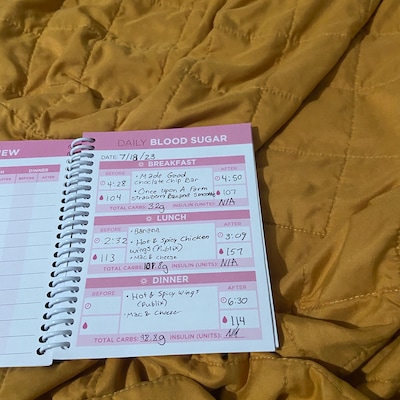 EW
DINNER
BEFORE AFTER
DAILY BLOOD SUGAR
DATE: 7/18/23
BREAKFAST
BEFORE
AFTER
• Made Good
chocolate Chip Bar
4:28
4:50
• Once Upon A Farm
Strawberry Banana Smoothie
104
107
TOTAL CARBS: 32g INSULIN (UNITS): N/A
LUNCH
BEFORE
AFTER
• Banana
2:32
• Hot & Spicy Chicken
wings (Publix)
• Mac & Cheese
113
157
TOTAL CARBS: INSULIN (UNITS): N/A
DINNER
BEFORE
AFTER
• Hot & Spicy Wings
(Publix)
6:30
• Mac & Cheese
114
TOTAL CARBS: INSULIN (UNITS): N/A